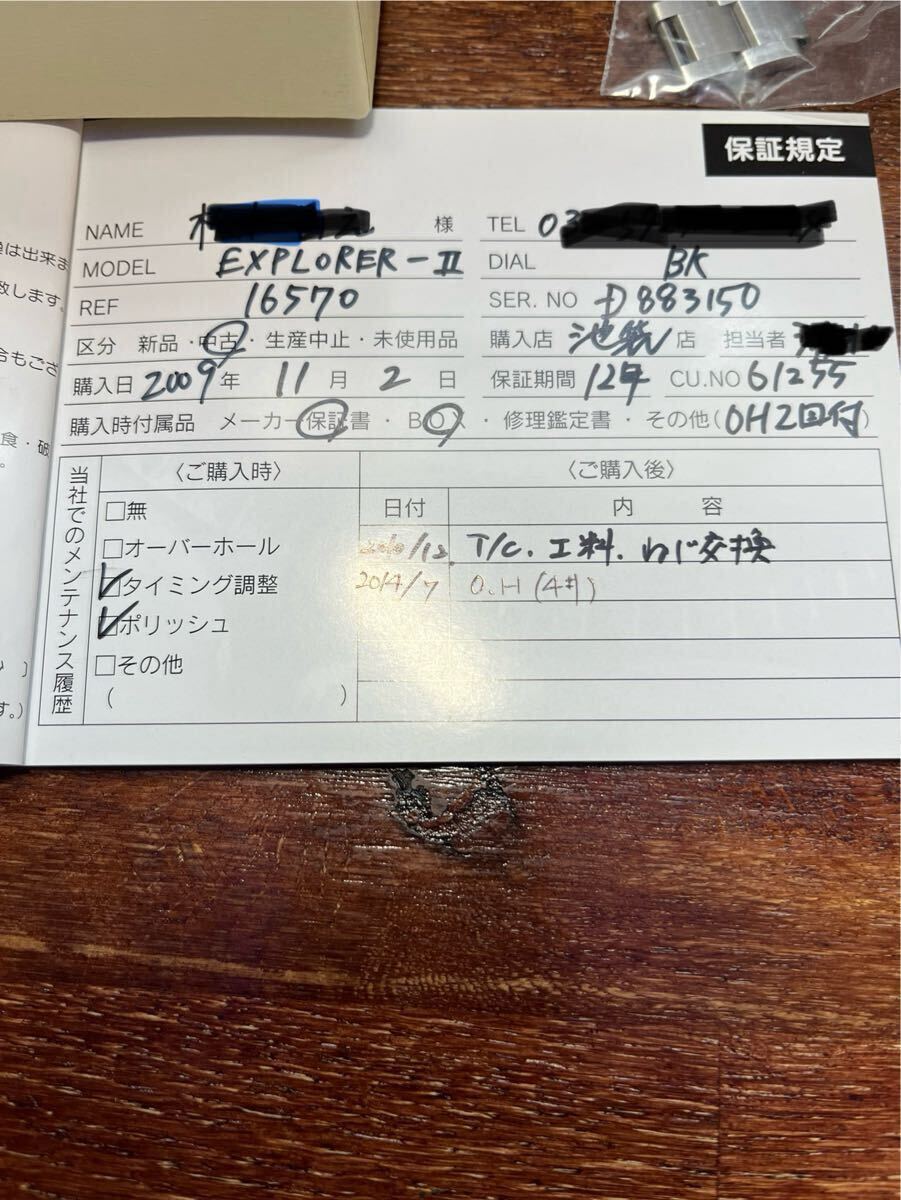 保証規定
NAME 様 TEL 03
MODEL EXPLORER-II DIAL BK
REF 16570 SER. NO D883150
区分 新品・中古・生産中止・未使用品 購入店 池袋 店 担当者
購入日 2009年 11月 2日 保証期間 12年 CU.NO 61255
購入時付属品 メーカー保証書・BOX・修理鑑定書・その他(OH2回付)
当社でのメンテナンス履歴
〈ご購入時〉 〈ご購入後〉
□無 日付 内容
□オーバーホール 2010/12. T/C. 工料. ねじ交換
☑タイミング調整 2014/7 O.H(4キ)
☑ポリッシュ
□その他
( )
は出来ま
致します。
合もござ
食・破
。
す。)